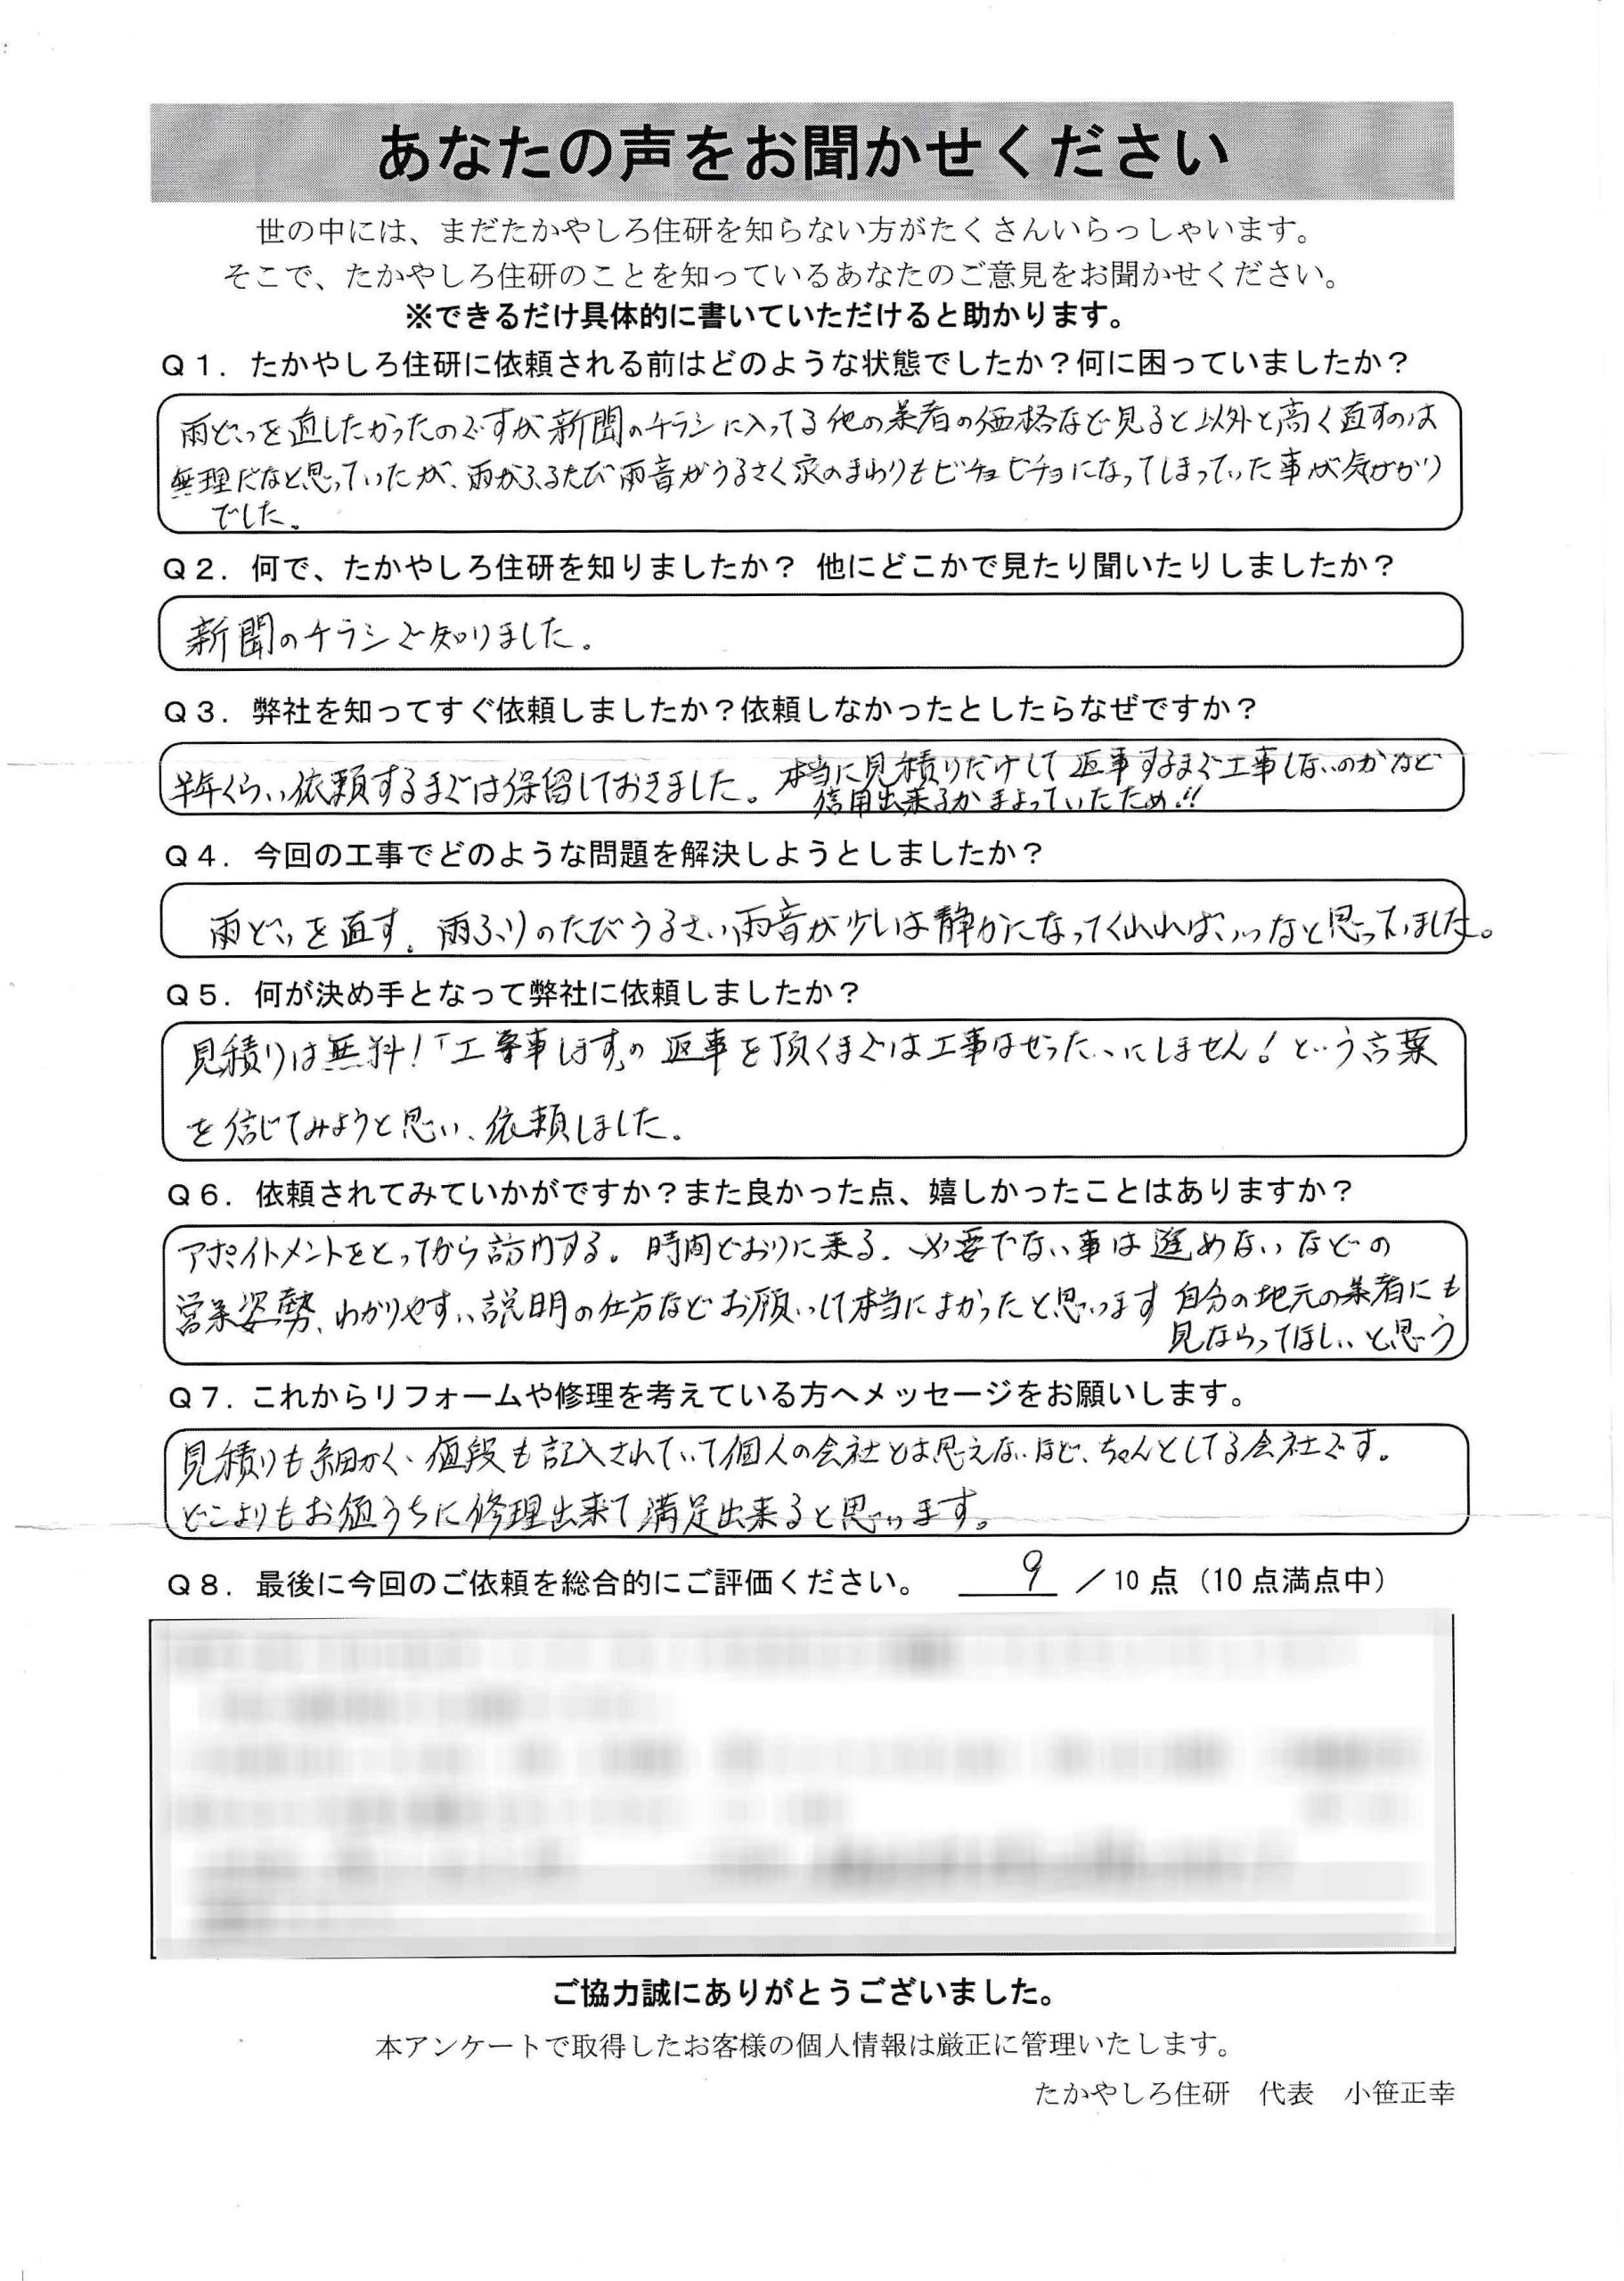 あなたの声をお聞かせください
世の中には、まだたかやしろ住研を知らない方がたくさんいらっしゃいます。
そこで、たかやしろ住研のことを知っているあなたのご意見をお聞かせください。
※できるだけ具体的に書いていただけると助かります。
Q1．たかやしろ住研に依頼される前はどのような状態でしたか？何に困っていましたか？
雨どいを直したかったのですが新聞のチラシに入ってる他の業者の価格など見ると以外と高く直すのは
無理だなと思っていたが、雨がふるたび雨音がうるさく家のまわりもビチョビチョになってしまっていた事が気がかり
でした。
Q2．何で、たかやしろ住研を知りましたか？ 他にどこかで見たり聞いたりしましたか？
新聞のチラシで知りました。
Q3．弊社を知ってすぐ依頼しましたか？依頼しなかったとしたらなぜですか？
半年くらい依頼するまでは保留しておきました。本当に見積りだけして返事するまで工事しないのかなど
信用出来るかまよっていたため!!
Q4．今回の工事でどのような問題を解決しようとしましたか？
雨どいを直す。雨ふりのたびうるさい雨音が少しは静かになってくれればいいなと思っていました。
Q5．何が決め手となって弊社に依頼しましたか？
見積りは無料！「工事します」の返事を頂くまでは工事はぜったいにしません！という言葉
を信じてみようと思い、依頼しました。
Q6．依頼されてみていかがですか？また良かった点、嬉しかったことはありますか？
アポイトメントをとってから訪問する。時間どおりに来る。必要でない事は進めないなどの
営業姿勢、わかりやすい説明の仕方などお願いして本当によかったと思います 自分の地元の業者にも
見ならってほしいと思う
Q7．これからリフォームや修理を考えている方へメッセージをお願いします。
見積りも細かく、値段も記入されていて個人の会社とは思えないほど、ちゃんとしてる会社です。
どこよりもお値うちに修理出来て満足出来ると思います。
Q8．最後に今回のご依頼を総合的にご評価ください。 9 ／10点（10点満点中）
ご協力誠にありがとうございました。
本アンケートで取得したお客様の個人情報は厳正に管理いたします。
たかやしろ住研 代表 小笹正幸